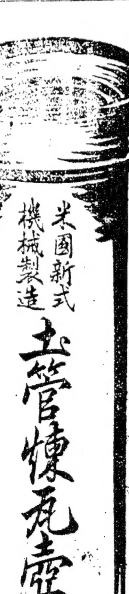 米國新式
機械製造
土管煉瓦壺